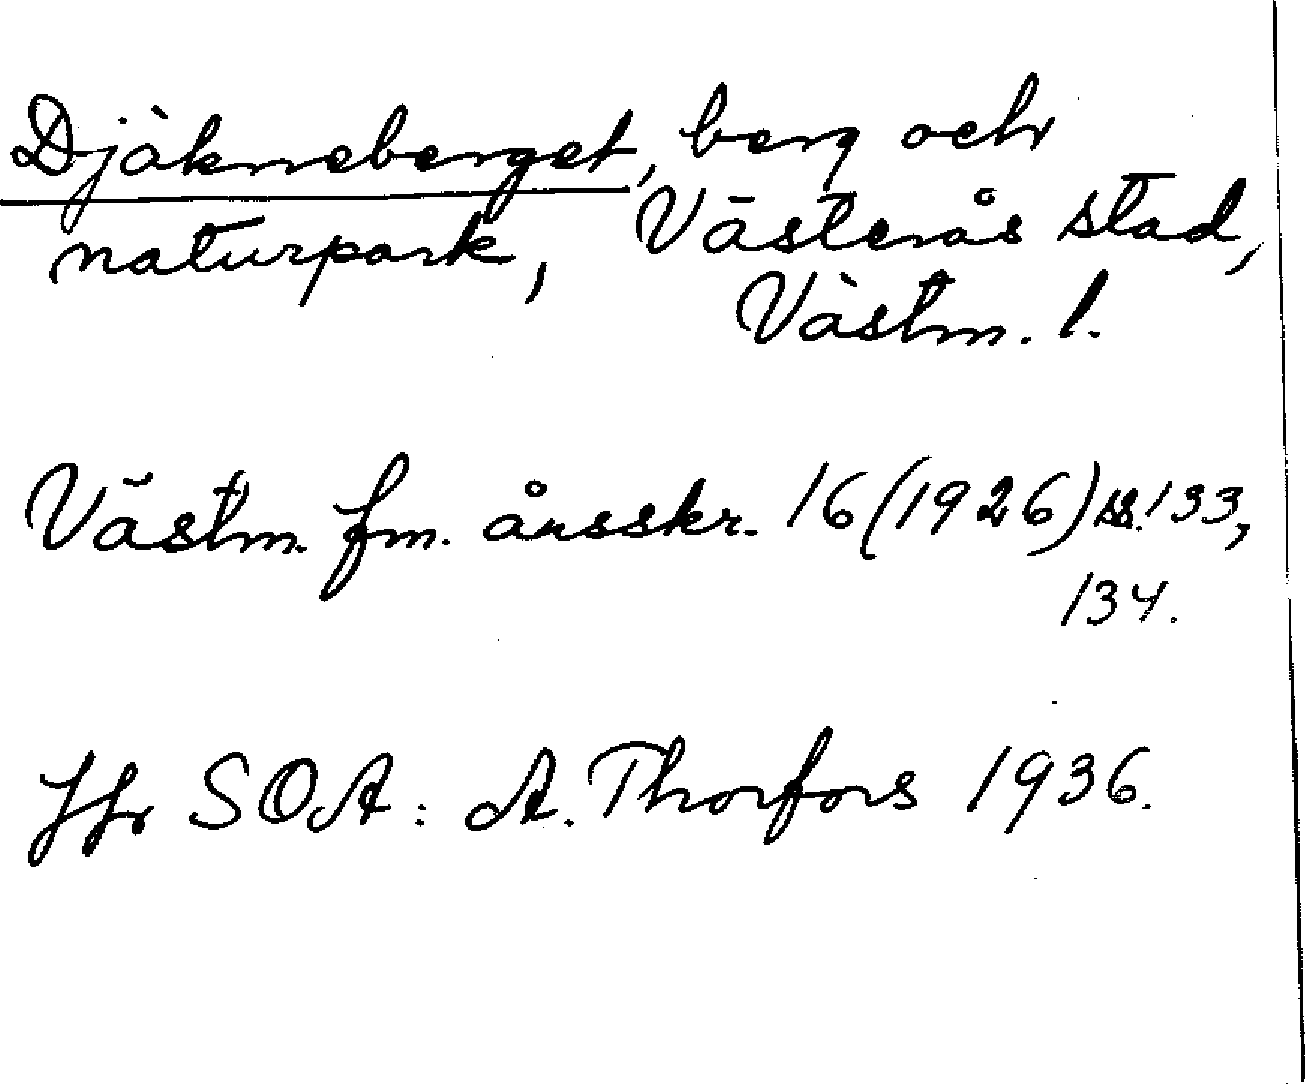 Djäkneberget, berg och
naturpark, Västerås stad,
Västm. l.
Västm. fm. årsskr. 16 (1926) ss. 133,
134.
Jfr SOA: A. Thorfors 1936.